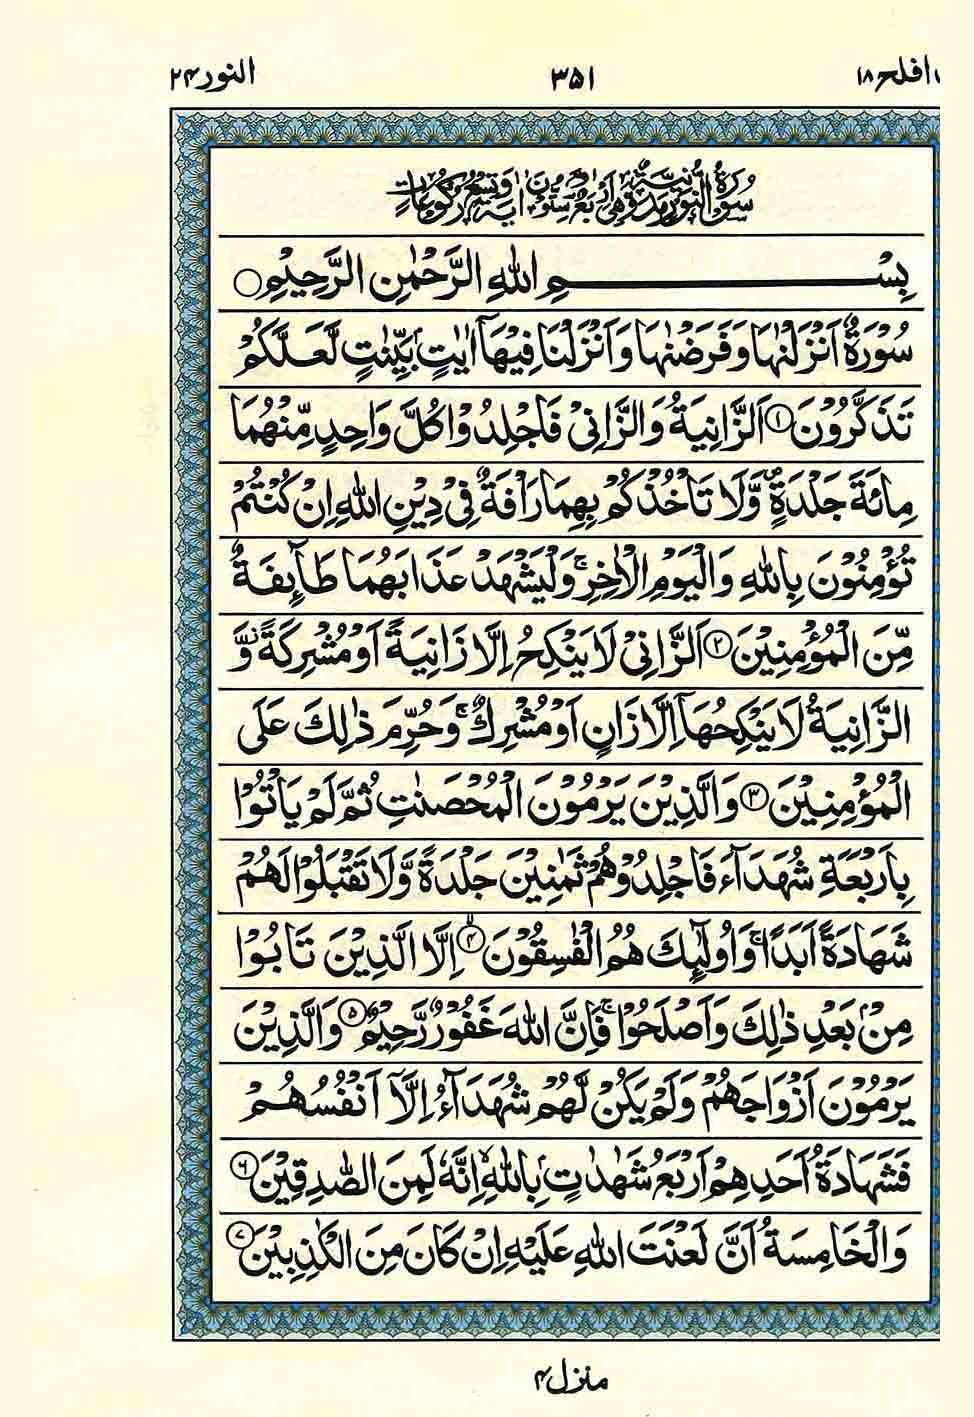 افلح ۱۸
۳۵۱
النور ۲۴
سُوْرَةُ النُّوْرِ مَدَنِيَّةٌ وَّهِيَ اَرْبَعٌ وَّسِتُّوْنَ اٰيَةً وَّتِسْعُ رُكُوْعَاتٍ
بِسْمِ اللهِ الرَّحْمٰنِ الرَّحِيْمِ ○
سُوْرَةٌ اَنْزَلْنٰهَا وَفَرَضْنٰهَا وَاَنْزَلْنَا فِيْهَآ اٰيٰتٍۭ بَيِّنٰتٍ لَّعَلَّكُمْ
تَذَكَّرُوْنَ ﴿۱﴾ اَلزَّانِيَةُ وَالزَّانِيْ فَاجْلِدُوْا كُلَّ وَاحِدٍ مِّنْهُمَا
مِائَةَ جَلْدَةٍ ۪ وَّلَا تَاْخُذْكُمْ بِهِمَا رَاْفَةٌ فِيْ دِيْنِ اللهِ اِنْ كُنْتُمْ
تُؤْمِنُوْنَ بِاللهِ وَالْيَوْمِ الْاٰخِرِ ۚ وَلْيَشْهَدْ عَذَابَهُمَا طَآئِفَةٌ
مِّنَ الْمُؤْمِنِيْنَ ﴿۲﴾ اَلزَّانِيْ لَا يَنْكِحُ اِلَّا زَانِيَةً اَوْ مُشْرِكَةً ۫ وَّ
الزَّانِيَةُ لَا يَنْكِحُهَآ اِلَّا زَانٍ اَوْ مُشْرِكٌ ۚ وَحُرِّمَ ذٰلِكَ عَلَى
الْمُؤْمِنِيْنَ ﴿۳﴾ وَالَّذِيْنَ يَرْمُوْنَ الْمُحْصَنٰتِ ثُمَّ لَمْ يَاْتُوْا
بِاَرْبَعَةِ شُهَدَآءَ فَاجْلِدُوْهُمْ ثَمٰنِيْنَ جَلْدَةً وَّلَا تَقْبَلُوْا لَهُمْ
شَهَادَةً اَبَدًا ۚ وَاُولٰٓئِكَ هُمُ الْفٰسِقُوْنَ ﴿۴﴾ اِلَّا الَّذِيْنَ تَابُوْا
مِنْۢ بَعْدِ ذٰلِكَ وَاَصْلَحُوْا ۚ فَاِنَّ اللهَ غَفُوْرٌ رَّحِيْمٌ ﴿۵﴾ وَالَّذِيْنَ
يَرْمُوْنَ اَزْوَاجَهُمْ وَلَمْ يَكُنْ لَّهُمْ شُهَدَآءُ اِلَّآ اَنْفُسُهُمْ
فَشَهَادَةُ اَحَدِهِمْ اَرْبَعُ شَهٰدٰتٍۭ بِاللهِ ۙ اِنَّهٗ لَمِنَ الصّٰدِقِيْنَ ﴿۶﴾
وَالْخَامِسَةُ اَنَّ لَعْنَتَ اللهِ عَلَيْهِ اِنْ كَانَ مِنَ الْكٰذِبِيْنَ ﴿۷﴾
منزل ۴